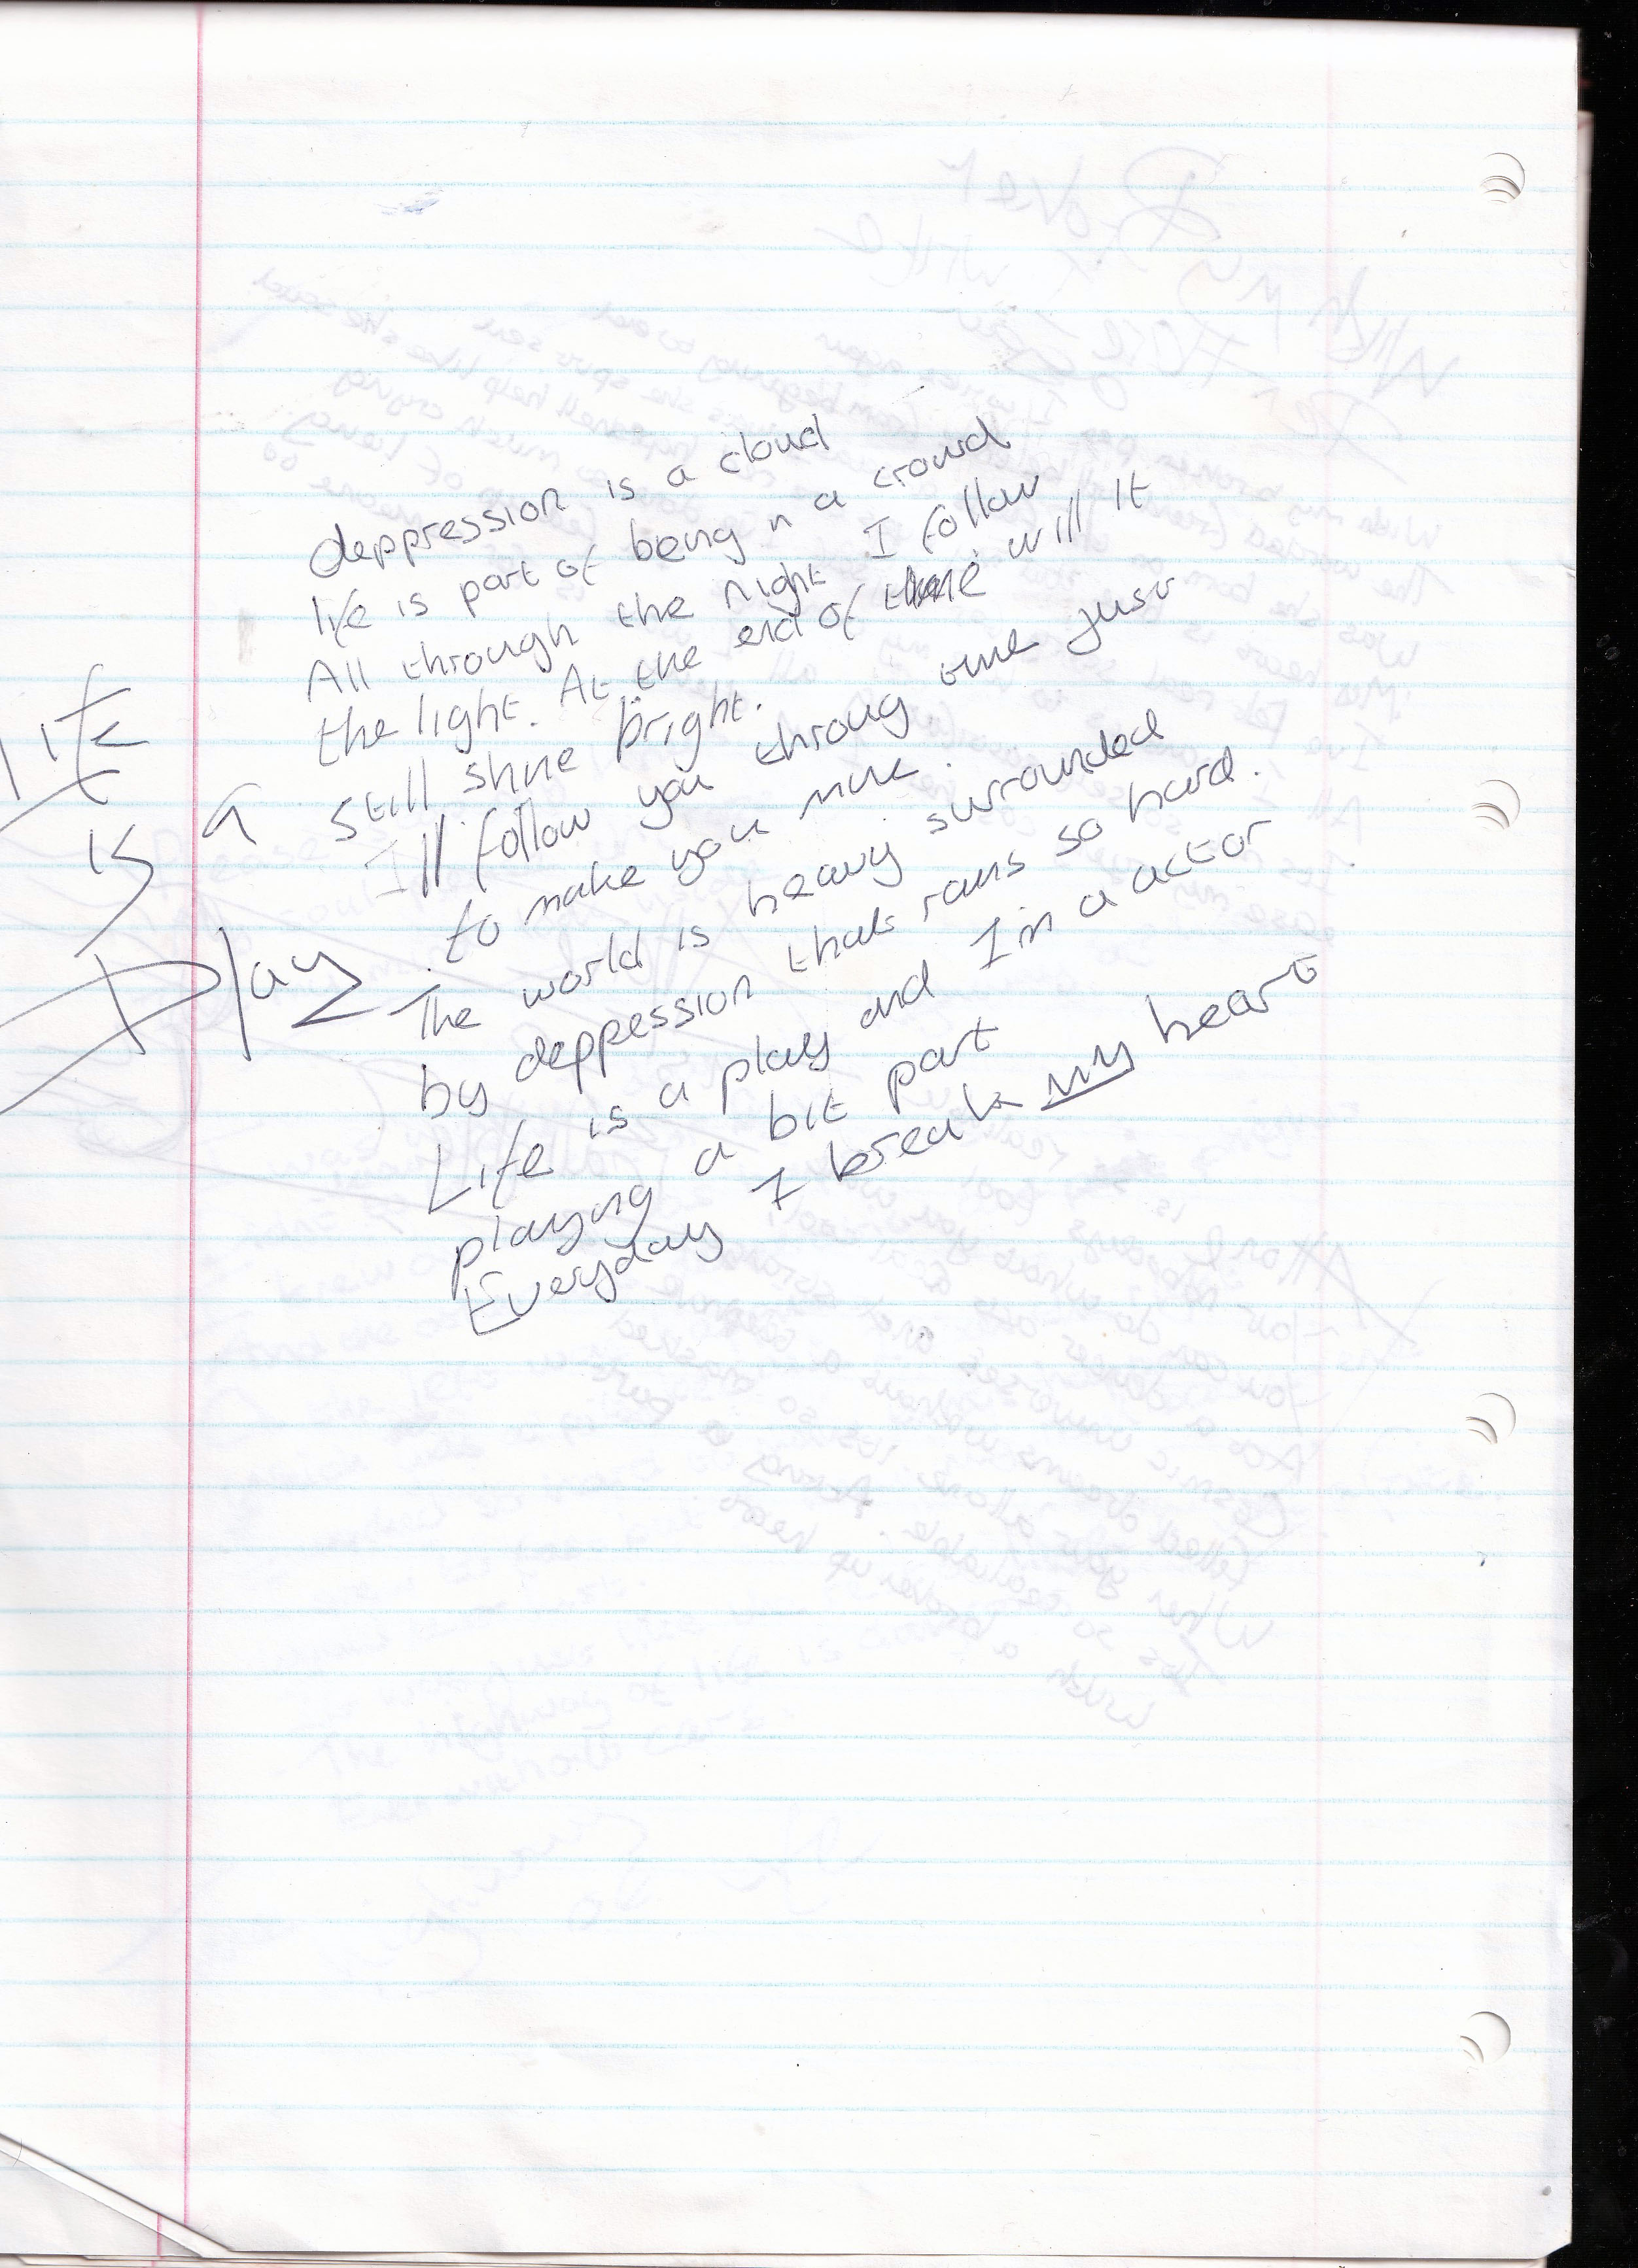 Life
is a
Play
deppression is a cloud
life is part of being n a crowd
All through the night I follow
the light. At the end of time will it
still shine bright.
I'll follow you throug time just
to make you mine.
The world is heavy surrounded
by deppression that rains so hard.
Life is a play and I'm a actor
playing a bit part
Everyday I break my heart